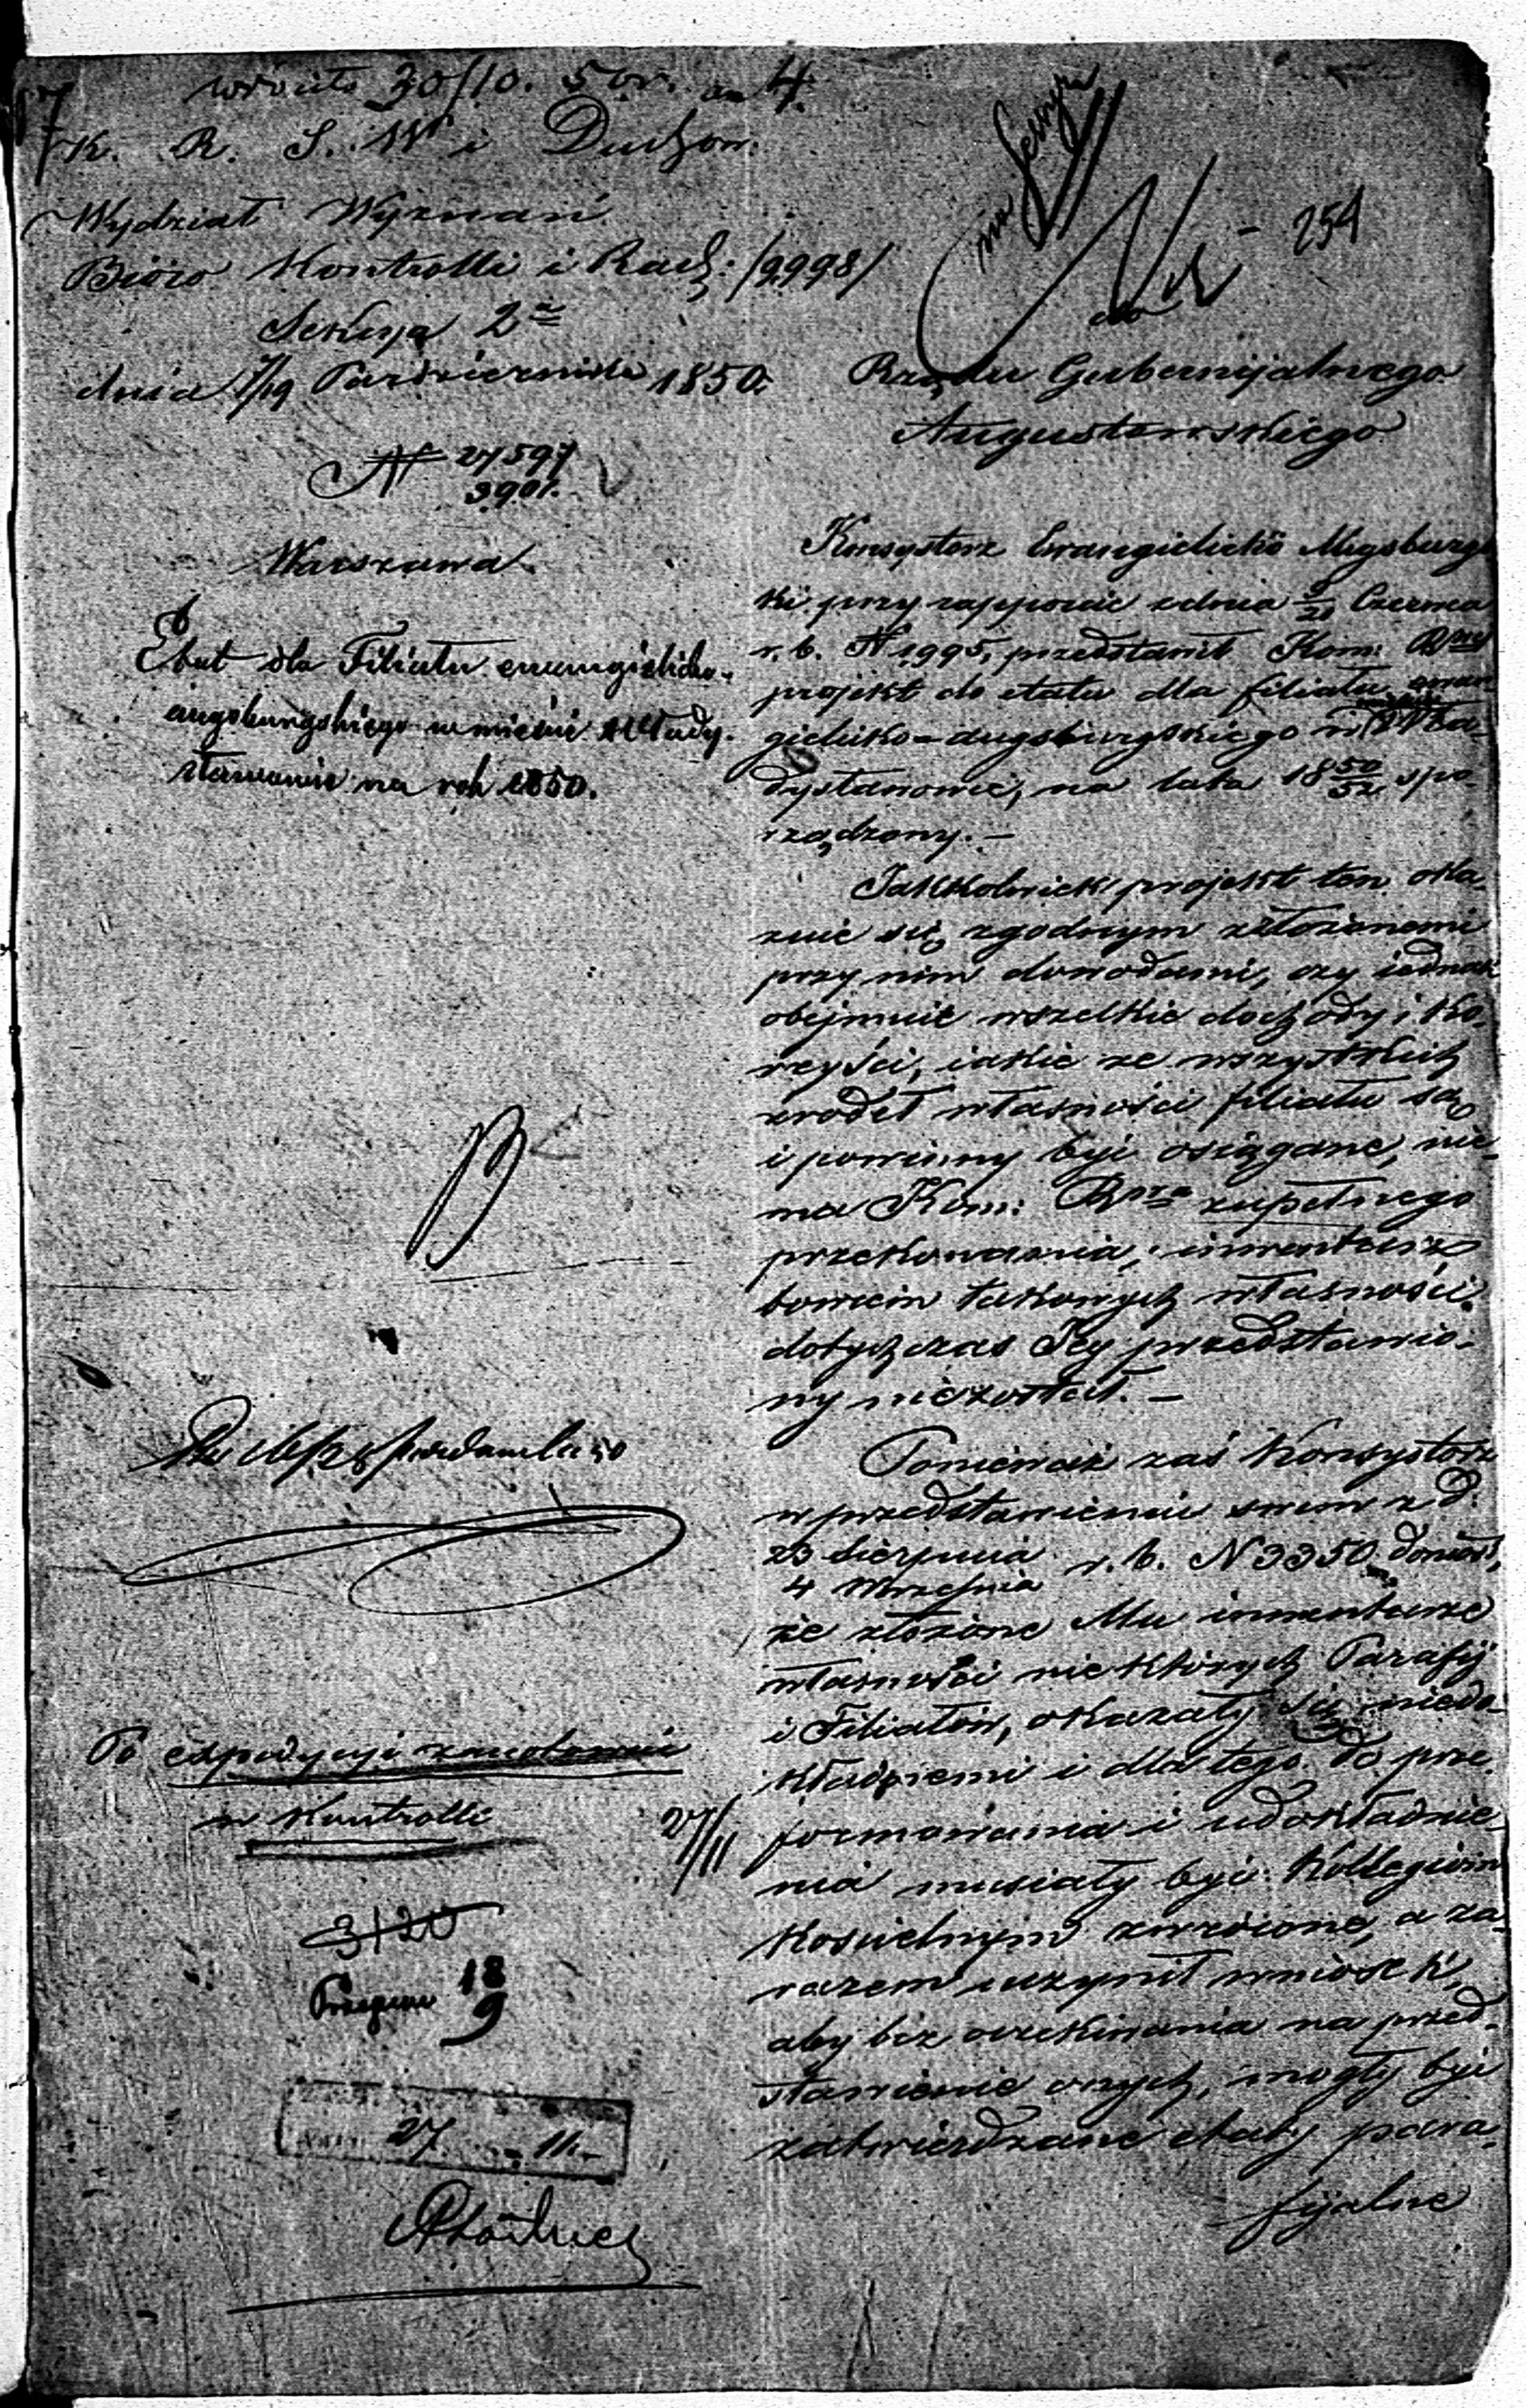 wróciło 30/10. 50r.
K. R. S. W i Duchow.
Wydział Wyznań
Bióro Kontrolli i Rach: /9998/
Sekcya 2a
dnia 7/19 Października 1850.
N 27597
3901.
Warszawa
Etat dla Filiału ewangielicko-
augsburgskiego w mieście Włady-
sławowie na rok 1850.
Po expedycyi
w Kontrolli
27/11
3120
18
9
27 11
254
do
Rządu Gubernijalnego
Augustowskiego
Konsystorz Ewangielicko Augsburgs
ki przy rapporcie z dnia 9/21 Czerwca
r. b. N 1995, przedstawił Kom: Rząd
projekt do etatu dla filiału ewan
gielicko-augsburgskiego w Wła-
dysławowie, na lata 1850/52 spo-
rządzony. -
Jakkolwiek projekt ten oka-
zuie się zgodnym z złożonemi
przy nim dowodami, czy iednak
obejmuie wszelkie dochody i ko-
rzyści, iakie ze wszystkich
zrodeł własności filiału są
i powinny być osiągane, nie-
ma Kom: Rząa zupełnego
przekonania, inwentarz
bowiem takowych własności
dotychczas Jey przedstawio-
ny niezostał. -
Ponieważ zaś Konsystorz
w przedstawieniu swem z d.
23 Sierpnia
4 Września r. b. N 3350 doniosł,
że złożone Mu inwentarze
własności niektórych Parafij
i Filiałów, okazały się niedo-
kładnemi i dla tego do prze-
formowania i udokładnie-
nia musiały być Kollegiom
Kościelnym zwrócone, a za-
razem uczynił wniosek,
aby bez oczekiwania na przed-
stawienie onych, mogły być
zatwierdzane etaty para-
fijalne